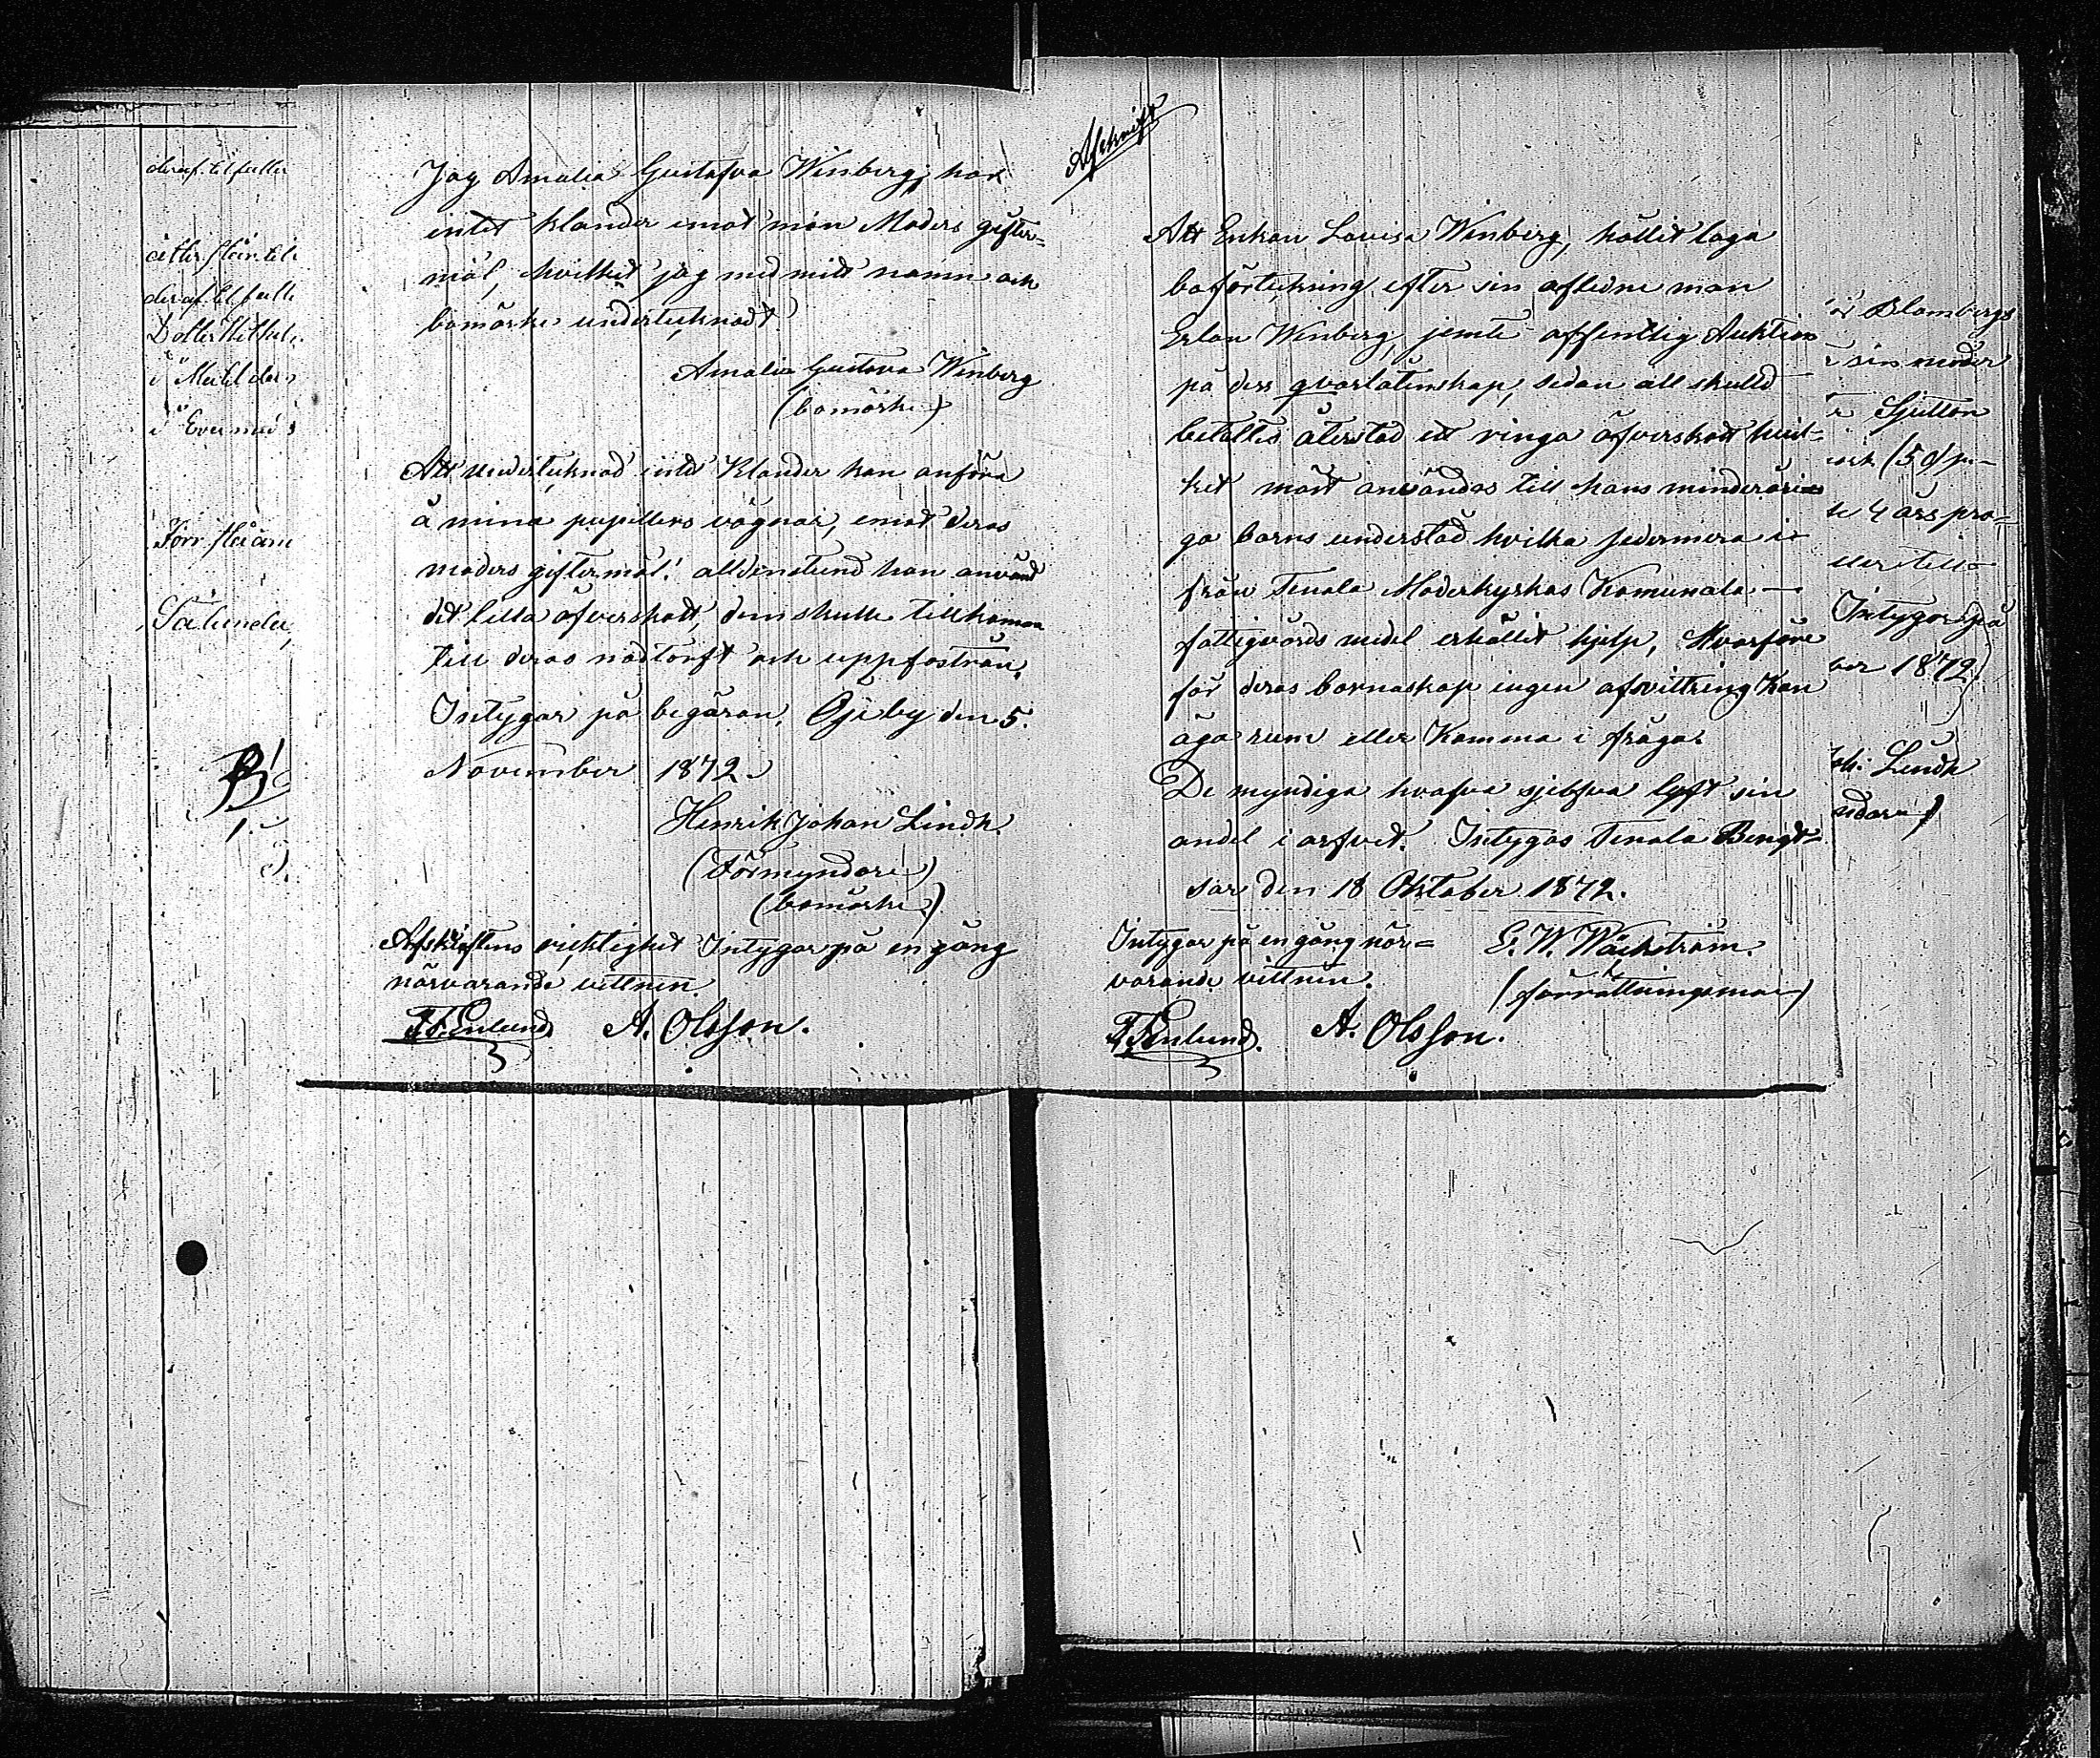 deraf tillfaller
deraf tillfalle
Dotter Vilhel
Således
B
1.
Jag Amalia Gustafva Winberg, har
intet klander emot min Moders gifter=
mål, hvilket jag med mitt namn och
bomärke undertecknadt.
Amalia Gustava Winberg
(bomärke)
Att undertecknad intet klander kan anföra
å mina pupillers vägnar, emot deras
moders giftermål! alldenstund hon användt
det lilla öfverskott, dem skulle tillkomma
till deras nödtorft och uppfostran,
Intygar på begäran, Öjeby den 5.
November 1872.
Henrik Johan Lindh.
(Förmyndare)
(bomärke)
Afskriftens riktighet Intygar på en gång
närvarande vittnen.
F. F. Enlund. A. Olsson.
Afskrift
Att Enkan Lovisa Winberg, hållit laga
boförteckning efter sin aflidne man
Erlan Winberg, jemte offentlig Auktion
på dess qvarlåtenskap, sedan all skulld
betaltes återstod ett ringa öfverskott hvil=
ket måst användas till hans minderåri=
ga barns understöd hvilka sedermera i
från Tenala Moderkyrkas Komunala
fattigvårds medel erhållit hjelp, Hvarföre
för deras barnaskap ingen afvittring kan
äga rum eller komma i fråga.
De myndiga hvafva sjelfva lyft sin
andel i arfvet. Intygas Tenala Bengt=
sar den 18 Oktober 1872.
Intygar på en gång när= E. W. Wackström.
varande vittnen. (förrättningsman)
F. F. Enlund. A. Olsson.
Blombergs
sin moder
Sjutton
(50 p
4 års pra=
eller till
Intygas på
ber 1872
Joh: Lindh
ndare)